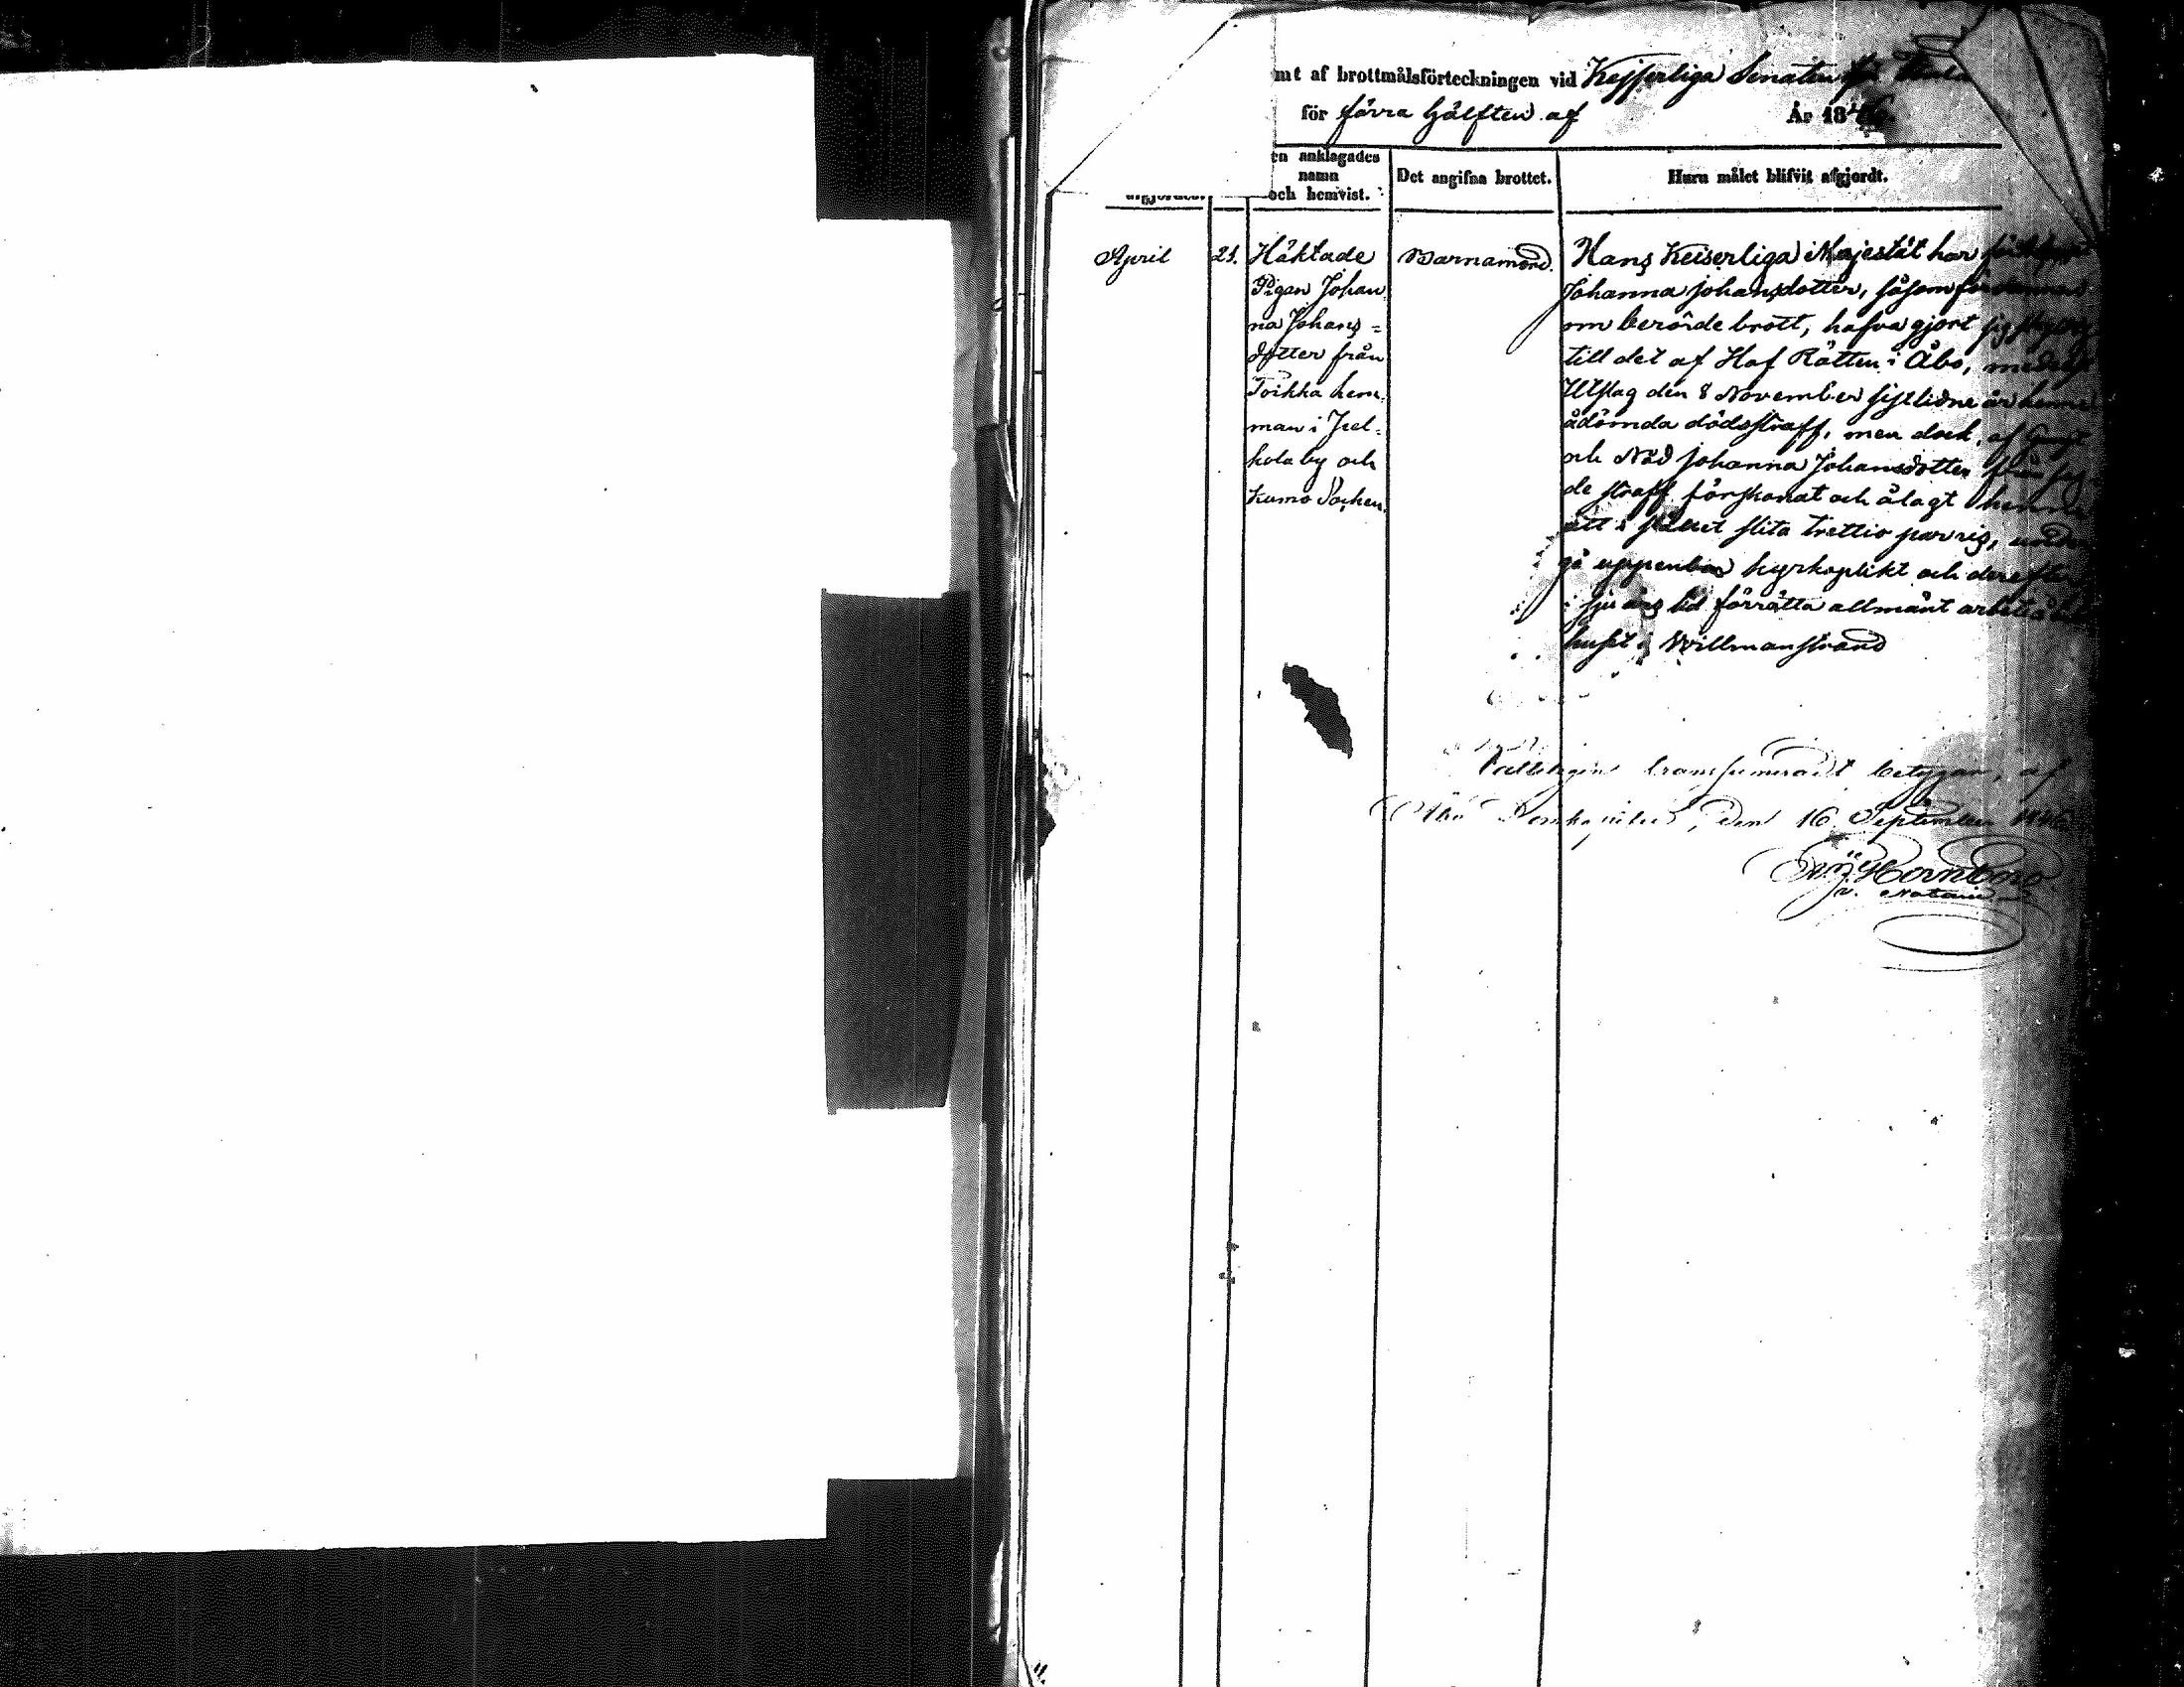 mt af brottmålsförteckningen vid Kejserliga Senaten för
för förra hälften af År 1846.
en anklagades
namn
och hemvist.
Det angifna brottet.
Huru målet blifvit afgjordt.
afgjordes.
April 21.
Häktade
Pigan Johan
na Johans=
dotter från
Toikka hem
man i
kola by och
Kumo Socken.
Barnamord.
Hans Keiserliga Majestät har
Johanna Johansdotter, såsom
om berörde brott, hafva gjort sig
till det af Hof Rätten i Åbo, medelst
Utslag den 8 November sistlidne år henne
ådömda dödsstraff, men dock, af Gunst
och Nåd Johanna Johansdotter från
de straff förskonat och ålagt henne
att i stället slita trettio par ris, under
gå uppenbar kyrkoplikt och derefter
i sju års tid förrätta allmänt arbete å
huset i Willmanstrand
transsumeradt betygar, af
Åbo Domkapitel, den 16 September 1846
v. Notarie